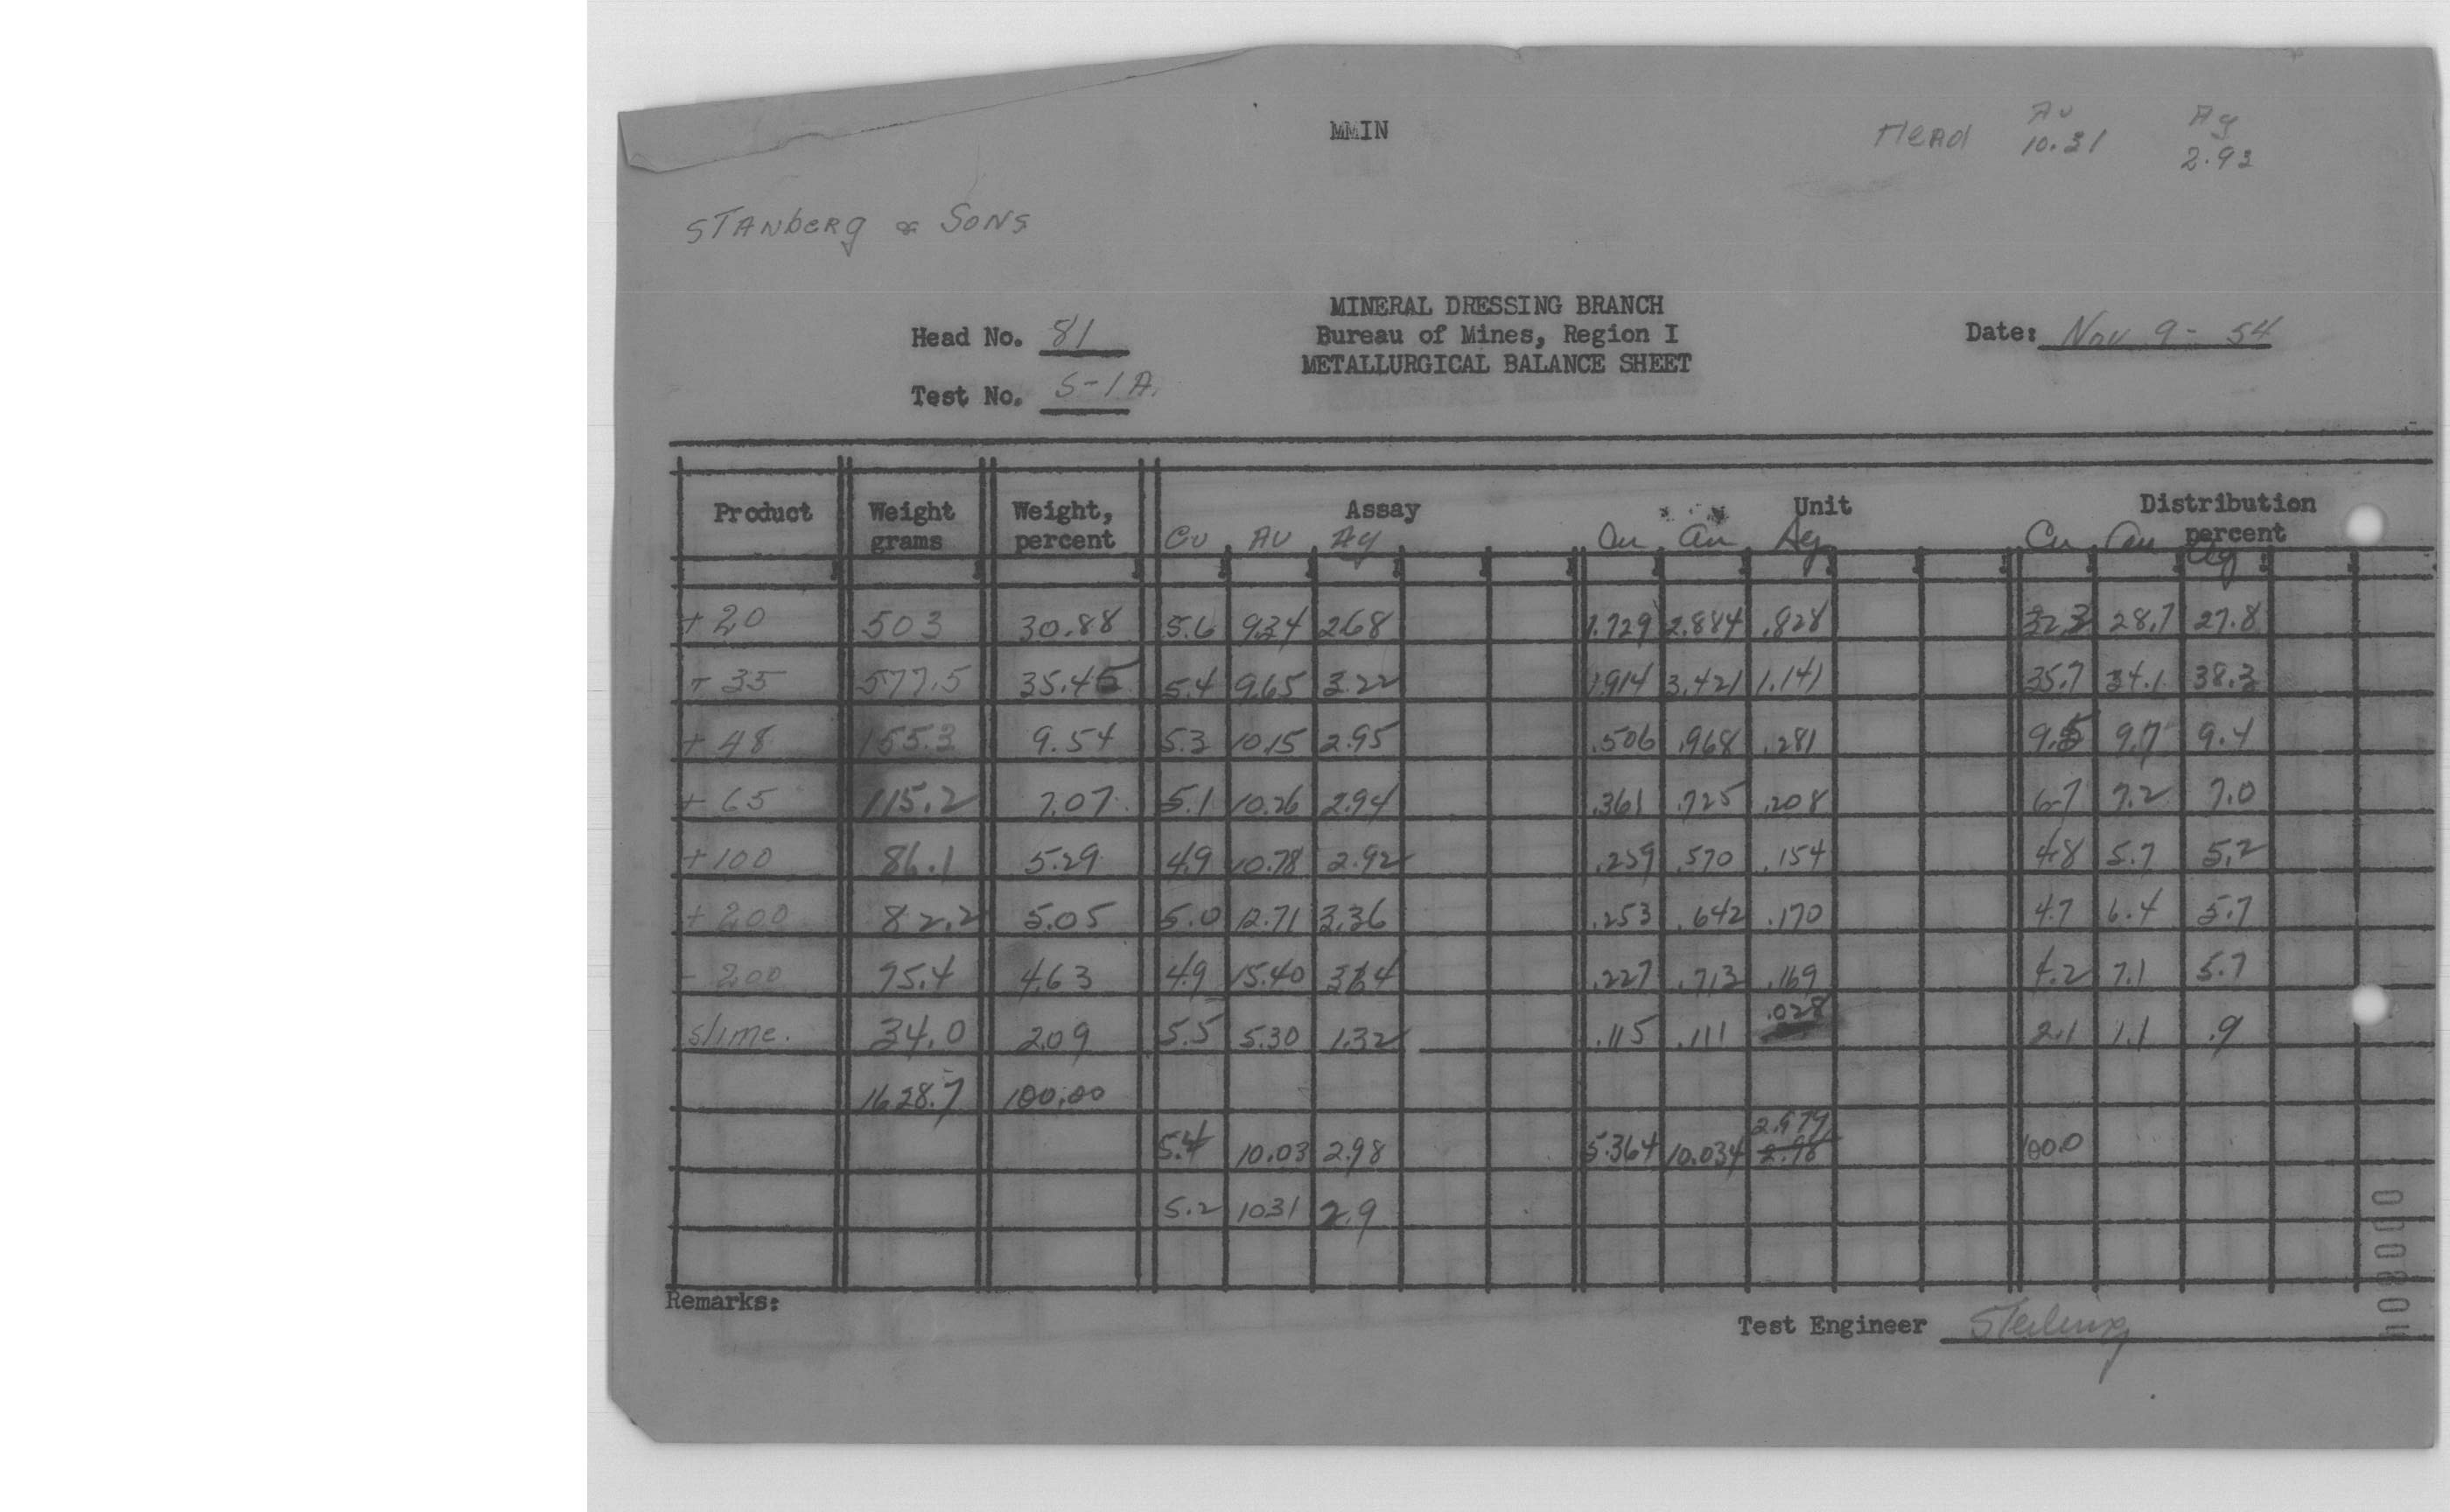 MMIN
Head Au Ag
10.31 2.93
STANberg & SONS
MINERAL DRESSING BRANCH
Head No. 81 Bureau of Mines, Region I Date: Nov 9 - 54
METALLURGICAL BALANCE SHEET
Test No. S-1A.
Product Weight grams Weight, percent Assay Unit Distribution percent
Cu Au Ag Cu Au Ag Cu Au Ag
+ 20 503 30.88 5.6 9.34 2.68 1.729 2.884 .828 32.3 28.7 27.8
+ 35 577.5 35.45 5.4 9.65 3.22 1.914 3.421 1.141 35.7 34.1 38.3
+ 48 155.3 9.54 5.3 10.15 2.95 .506 .968 .281 9.5 9.7 9.4
+ 65 115.2 7.07 5.1 10.26 2.94 .361 .725 .208 6.7 7.2 7.0
+ 100 86.1 5.29 4.9 10.78 2.92 .259 .570 .154 4.8 5.7 5.2
+ 200 82.2 5.05 5.0 12.71 3.36 .253 .642 .170 4.7 6.4 5.7
- 200 75.4 4.63 4.9 15.40 3.64 .227 .713 .169 4.2 7.1 5.7
slime. 34.0 2.09 5.5 5.30 1.32 .115 .111 .028 2.1 1.1 .9
1628.7 100.00
5.4 10.03 2.98 5.364 10.034 2.979 2.98 100.0
5.2 10.31 2.9
Remarks:
Test Engineer Sterling